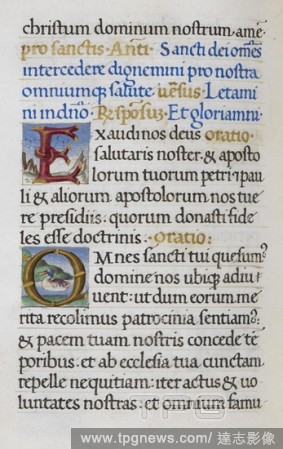 christum dominum nostrum. amē
pro sanctis. Anti. Sancti dei om̄es
intercedere dignemini pro nostra
omniumq; salute. uersus. Letami
ni in dn̄o. Responsus. Et gloriamini
Exaudi nos deus oratio.
salutaris noster. & aposto
lorum tuorum petri. pau
li & aliorum apostolorum nos tue
re presidiis. quorum donasti fide
les esse doctrinis. Oratio:
OMnes sancti tui quesum?
domine nos ubiq; adiu
uent: ut dum eorum me
rita recolimus patrocinia sentiam?
& pacem tuam nostris concede tē
poribus: et ab ecclesia tua cunctam
repelle nequitiam: iter actus & uo
luntates nostras: et omnium famu
TPG
www.tpgnews.com/達志影像